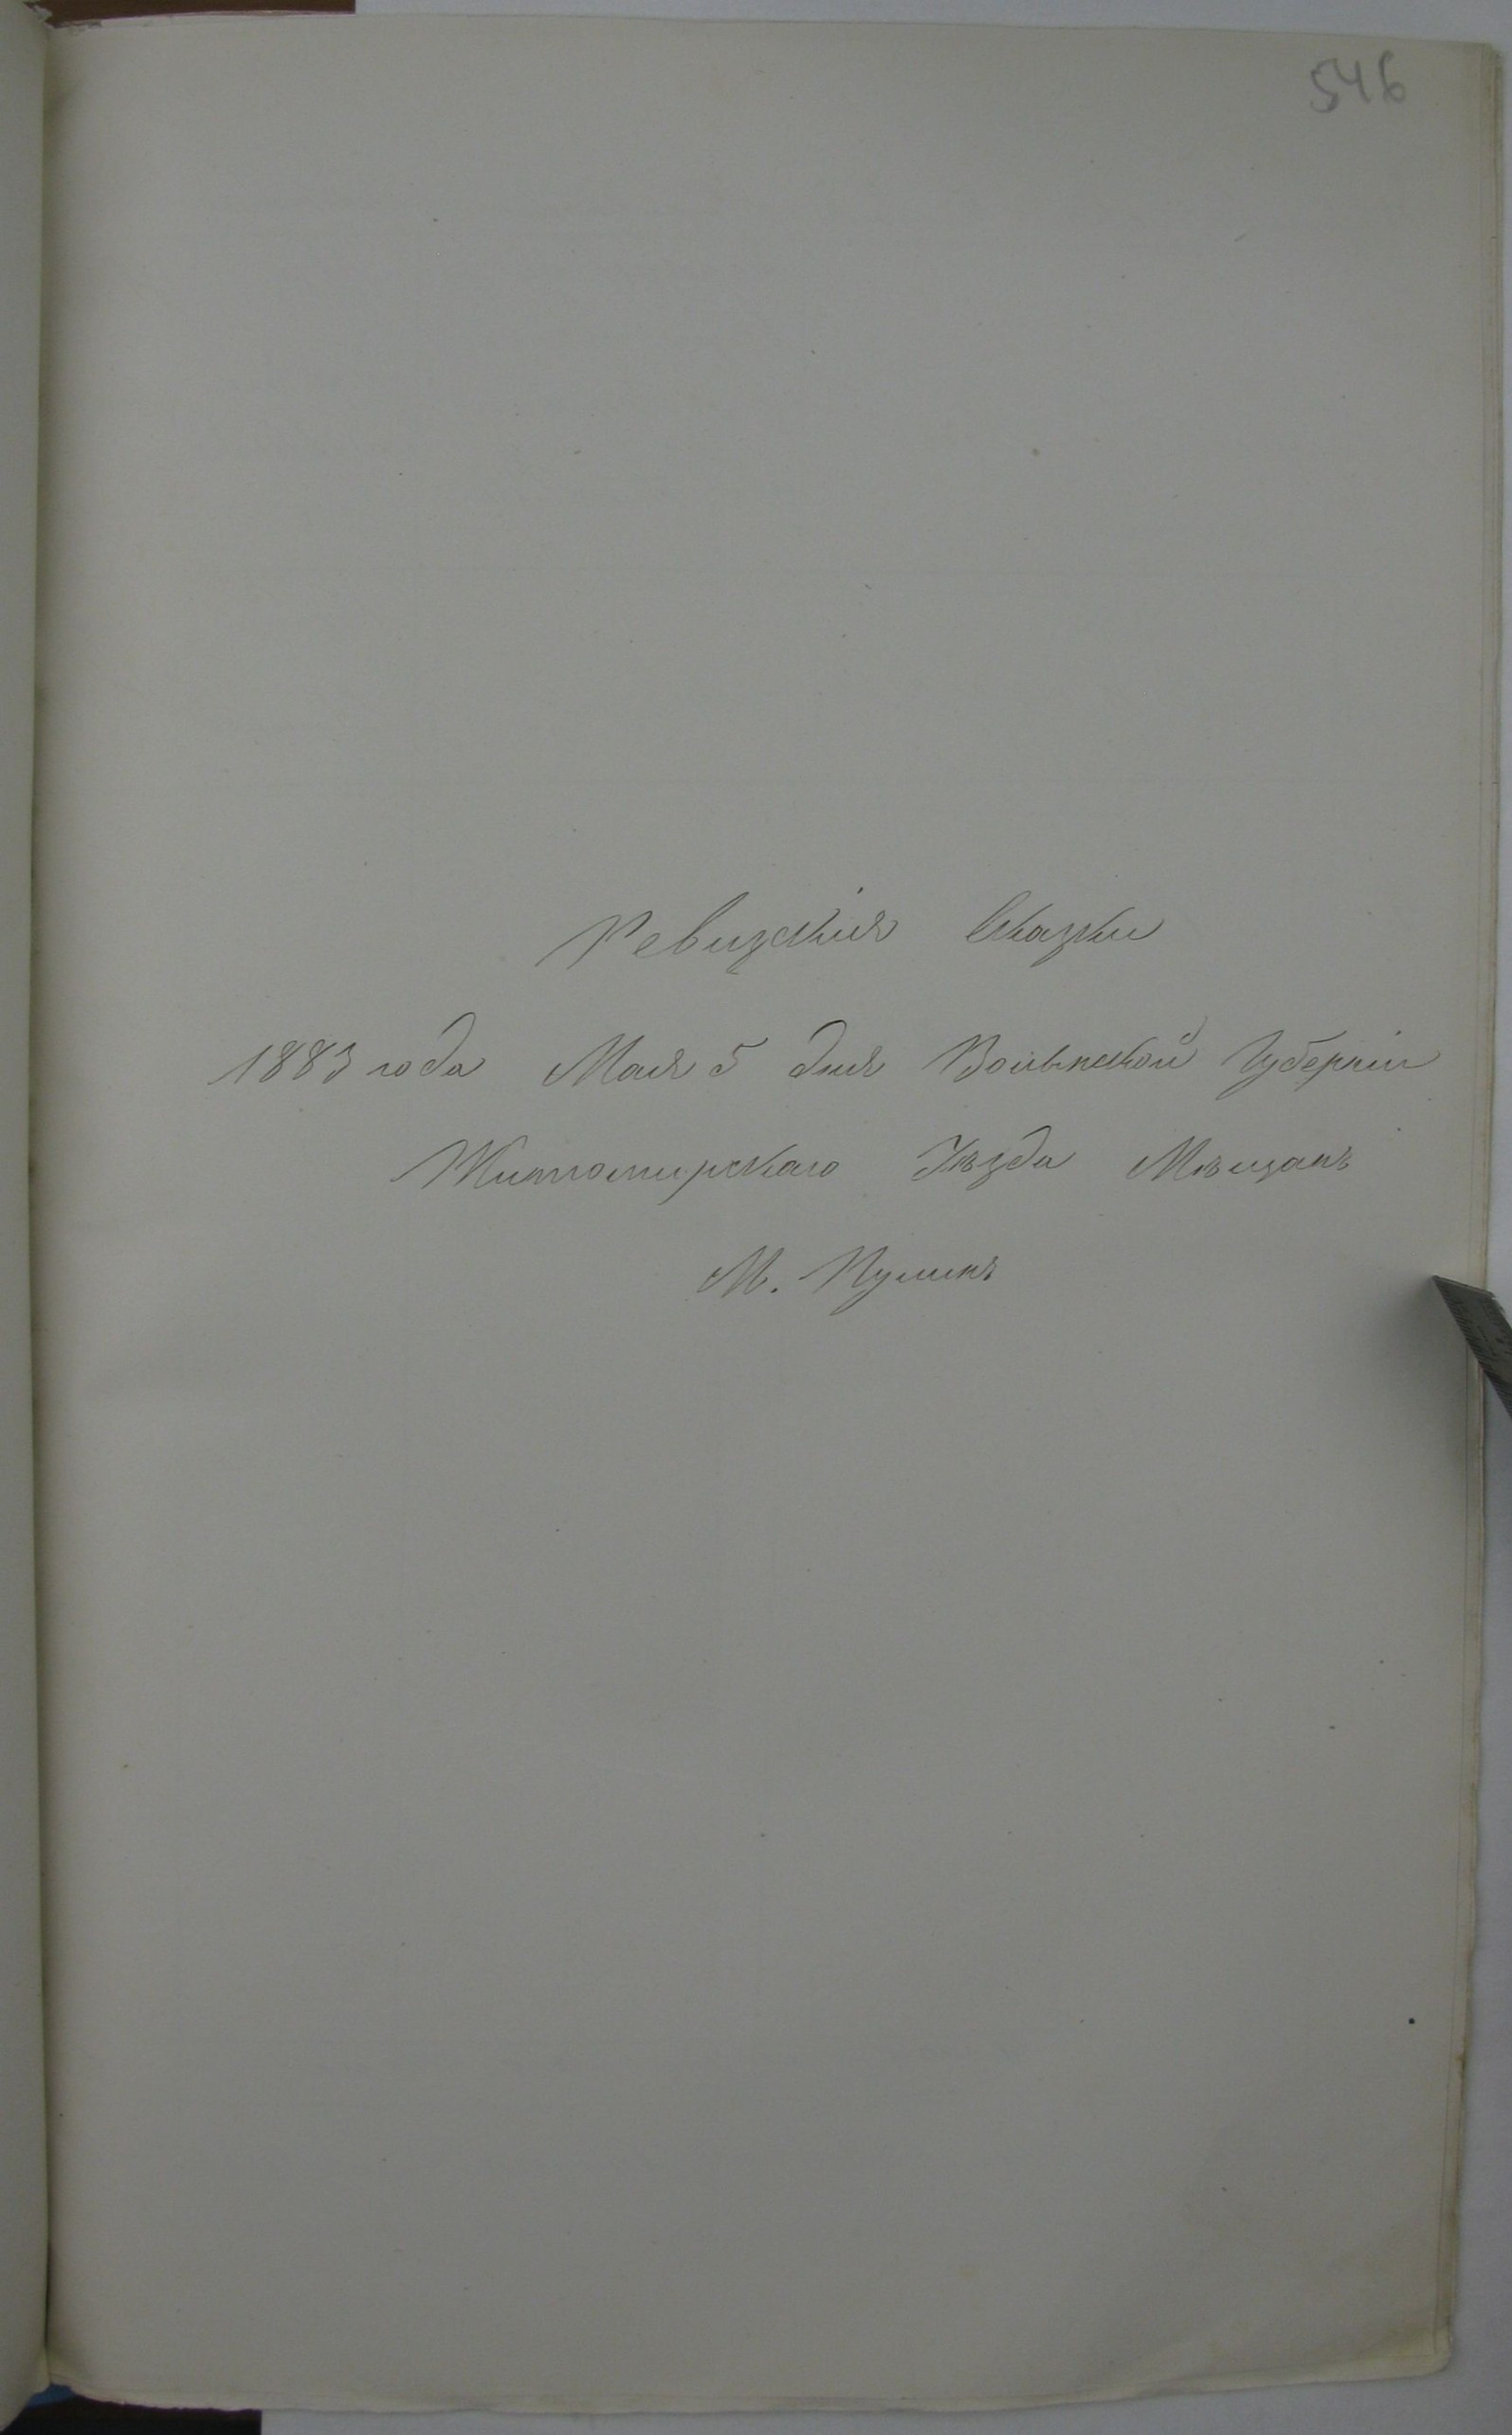 546
Ревизскія Сказки
1883 года Мая 5 дня Волынской Губерніи
Житомирскаго Уѣзда Мѣщанъ
М. Пулинъ